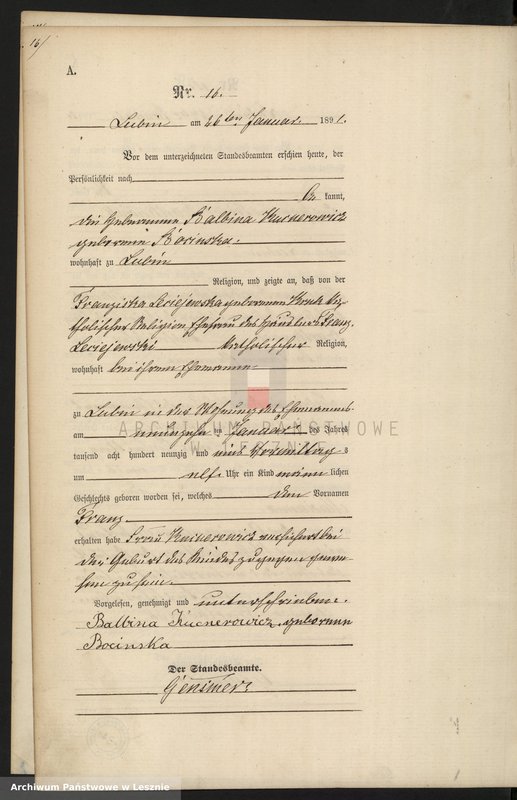 16/
A.
Nr. 16.
Lubin am 26ten Januar 1891.
Vor dem unterzeichneten Standesbeamten erschien heute, der
Persönlichkeit nach
be kannt,
die Hebeamme Balbina Kucnerowicz
geborene Bocinska.
wohnhaft zu Lubin
Religion, und zeigte an, daß von der
Franziska Leciejewska geborenen Kruk ka
tholischer Religion Ehefrau des Händlers Franz
Leciejewski katholischer Religion,
wohnhaft bei ihrem Ehemanne
zu Lubin in der Wohnung des Ehemannes
am neunzehn ten Januar des Jahres
tausend acht hundert neunzig und eins Vormittags
um elf Uhr ein Kind männ lichen
Geschlechts geboren worden sei, welches den Vornamen
Franz
erhalten habe Frau Kucnerowicz versichert bei
der Geburt des Kindes zugegen gewe
sen zu sein.
Vorgelesen, genehmigt und unterschrieben.
Balbina Kucnerowicz geborene
Bocinska
Der Standesbeamte.
ARCHIWUM PAŃSTWOWE
W LESZNIE
Archiwum Państwowe w Lesznie